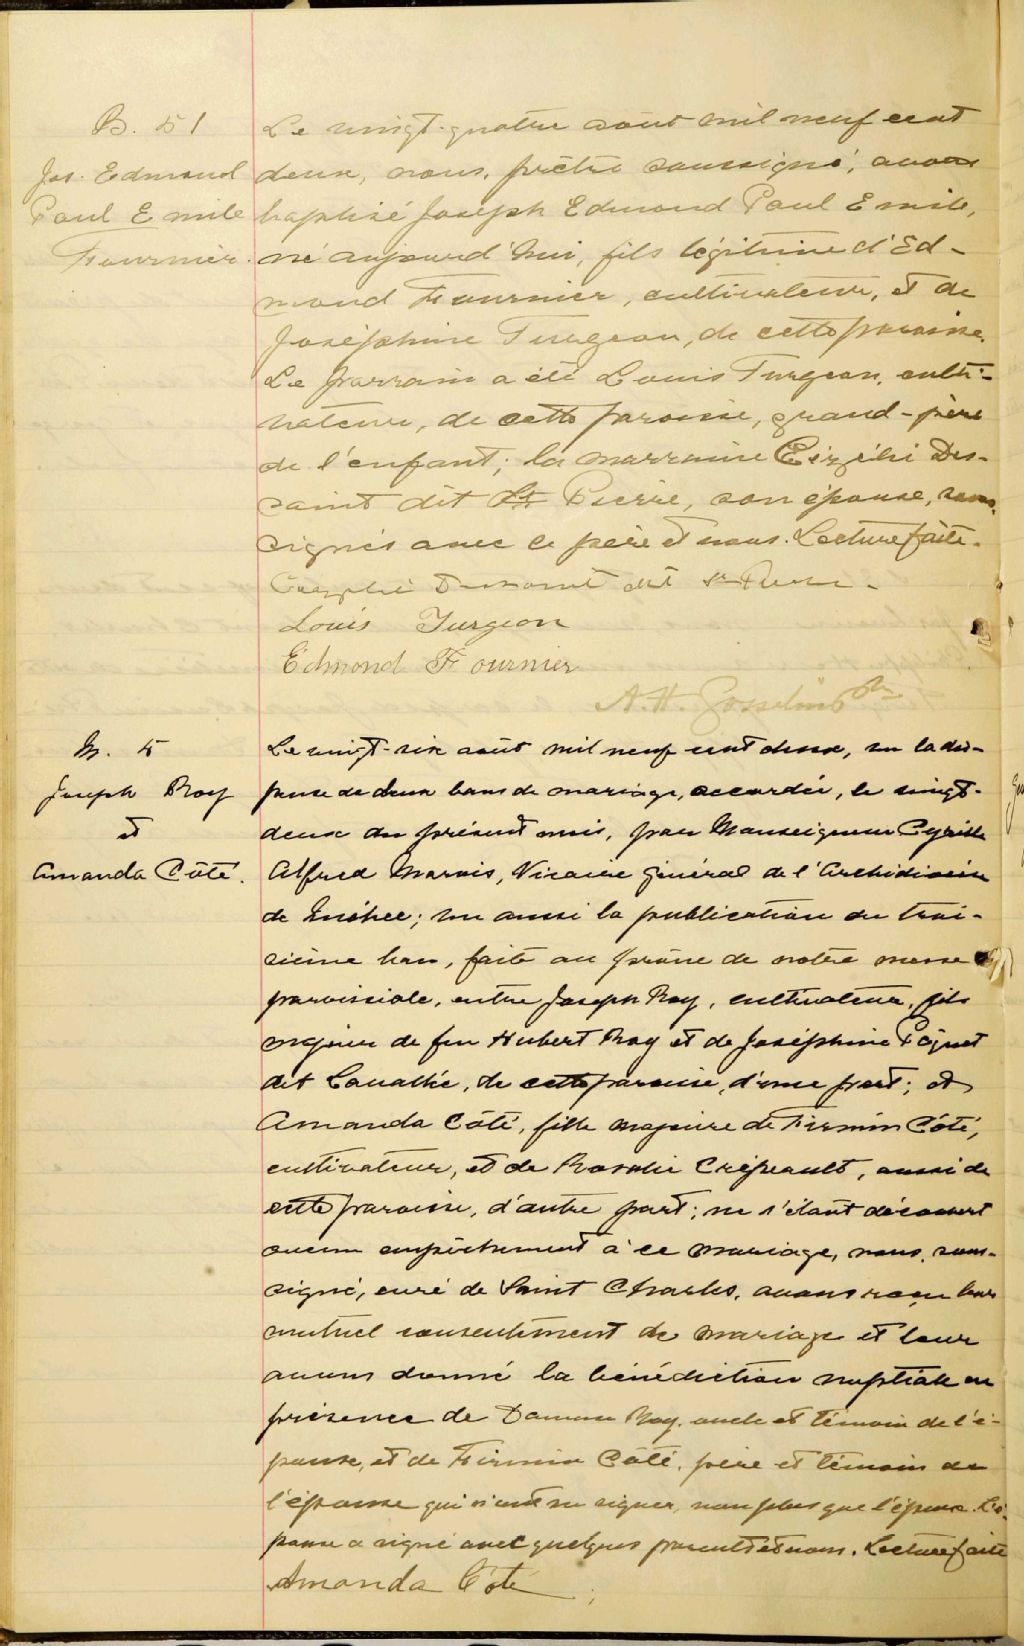 B. 51
Jos. Edmond
Paul Emile
Fournier.
Le vingt-quatre août mil neuf cent
deux, nous, prêtre soussigné, avons
baptisé Joseph Edmond Paul Emile,
né aujourd'hui, fils légitime d'Ed-
mond Fournier, cultivateur, et de
Joséphine Turgeon, de cette paroisse.
Le parrain a été Louis Turgeon, culti-
vateur, de cette paroisse, grand-père
de l'enfant; la marraine Des-
saint dit St Pierre, son épouse, sous-
signés avec le père et nous. Lecture faite.
dit St Pierre
Louis Turgeon
Edmond Fournier
A. H. Gosselin Ptre
M. 5
Joseph Roy
et
Amanda Côté.
Le vingt-six août mil neuf cent deux, vu la dis-
pense de deux bans de mariage, accordée, le vingt-
deux du présent mois, par Monseigneur Cyrille
Alfred Marois, Vicaire général de l'Archidiocèse
de Québec; vu aussi la publication du troi-
sième ban, faite au prône de notre messe
paroissiale, entre Joseph Roy, cultivateur, fils
majeur de feu Hubert Roy et de Joséphine Paquet
dit Lavallée, de cette paroisse, d'une part; et
Amanda Côté, fille majeure de Firmin Côté,
cultivateur, et de Rosalie Crépeault, aussi de
cette paroisse, d'autre part; ne s'étant découvert
aucun empêchement à ce mariage, nous, sous-
signé, curé de Saint Charles, avons reçu leur
mutuel consentement de mariage et leur
avons donné la bénédiction nuptiale en
présence de Damase Roy, oncle et témoin de l'é-
poux, et de Firmin Côté, père et témoin de
l'épouse qui n'ont su signer, non plus que l'époux. L'é-
pouse a signé avec quelques parents et nous. Lecture faite
Amanda Côté